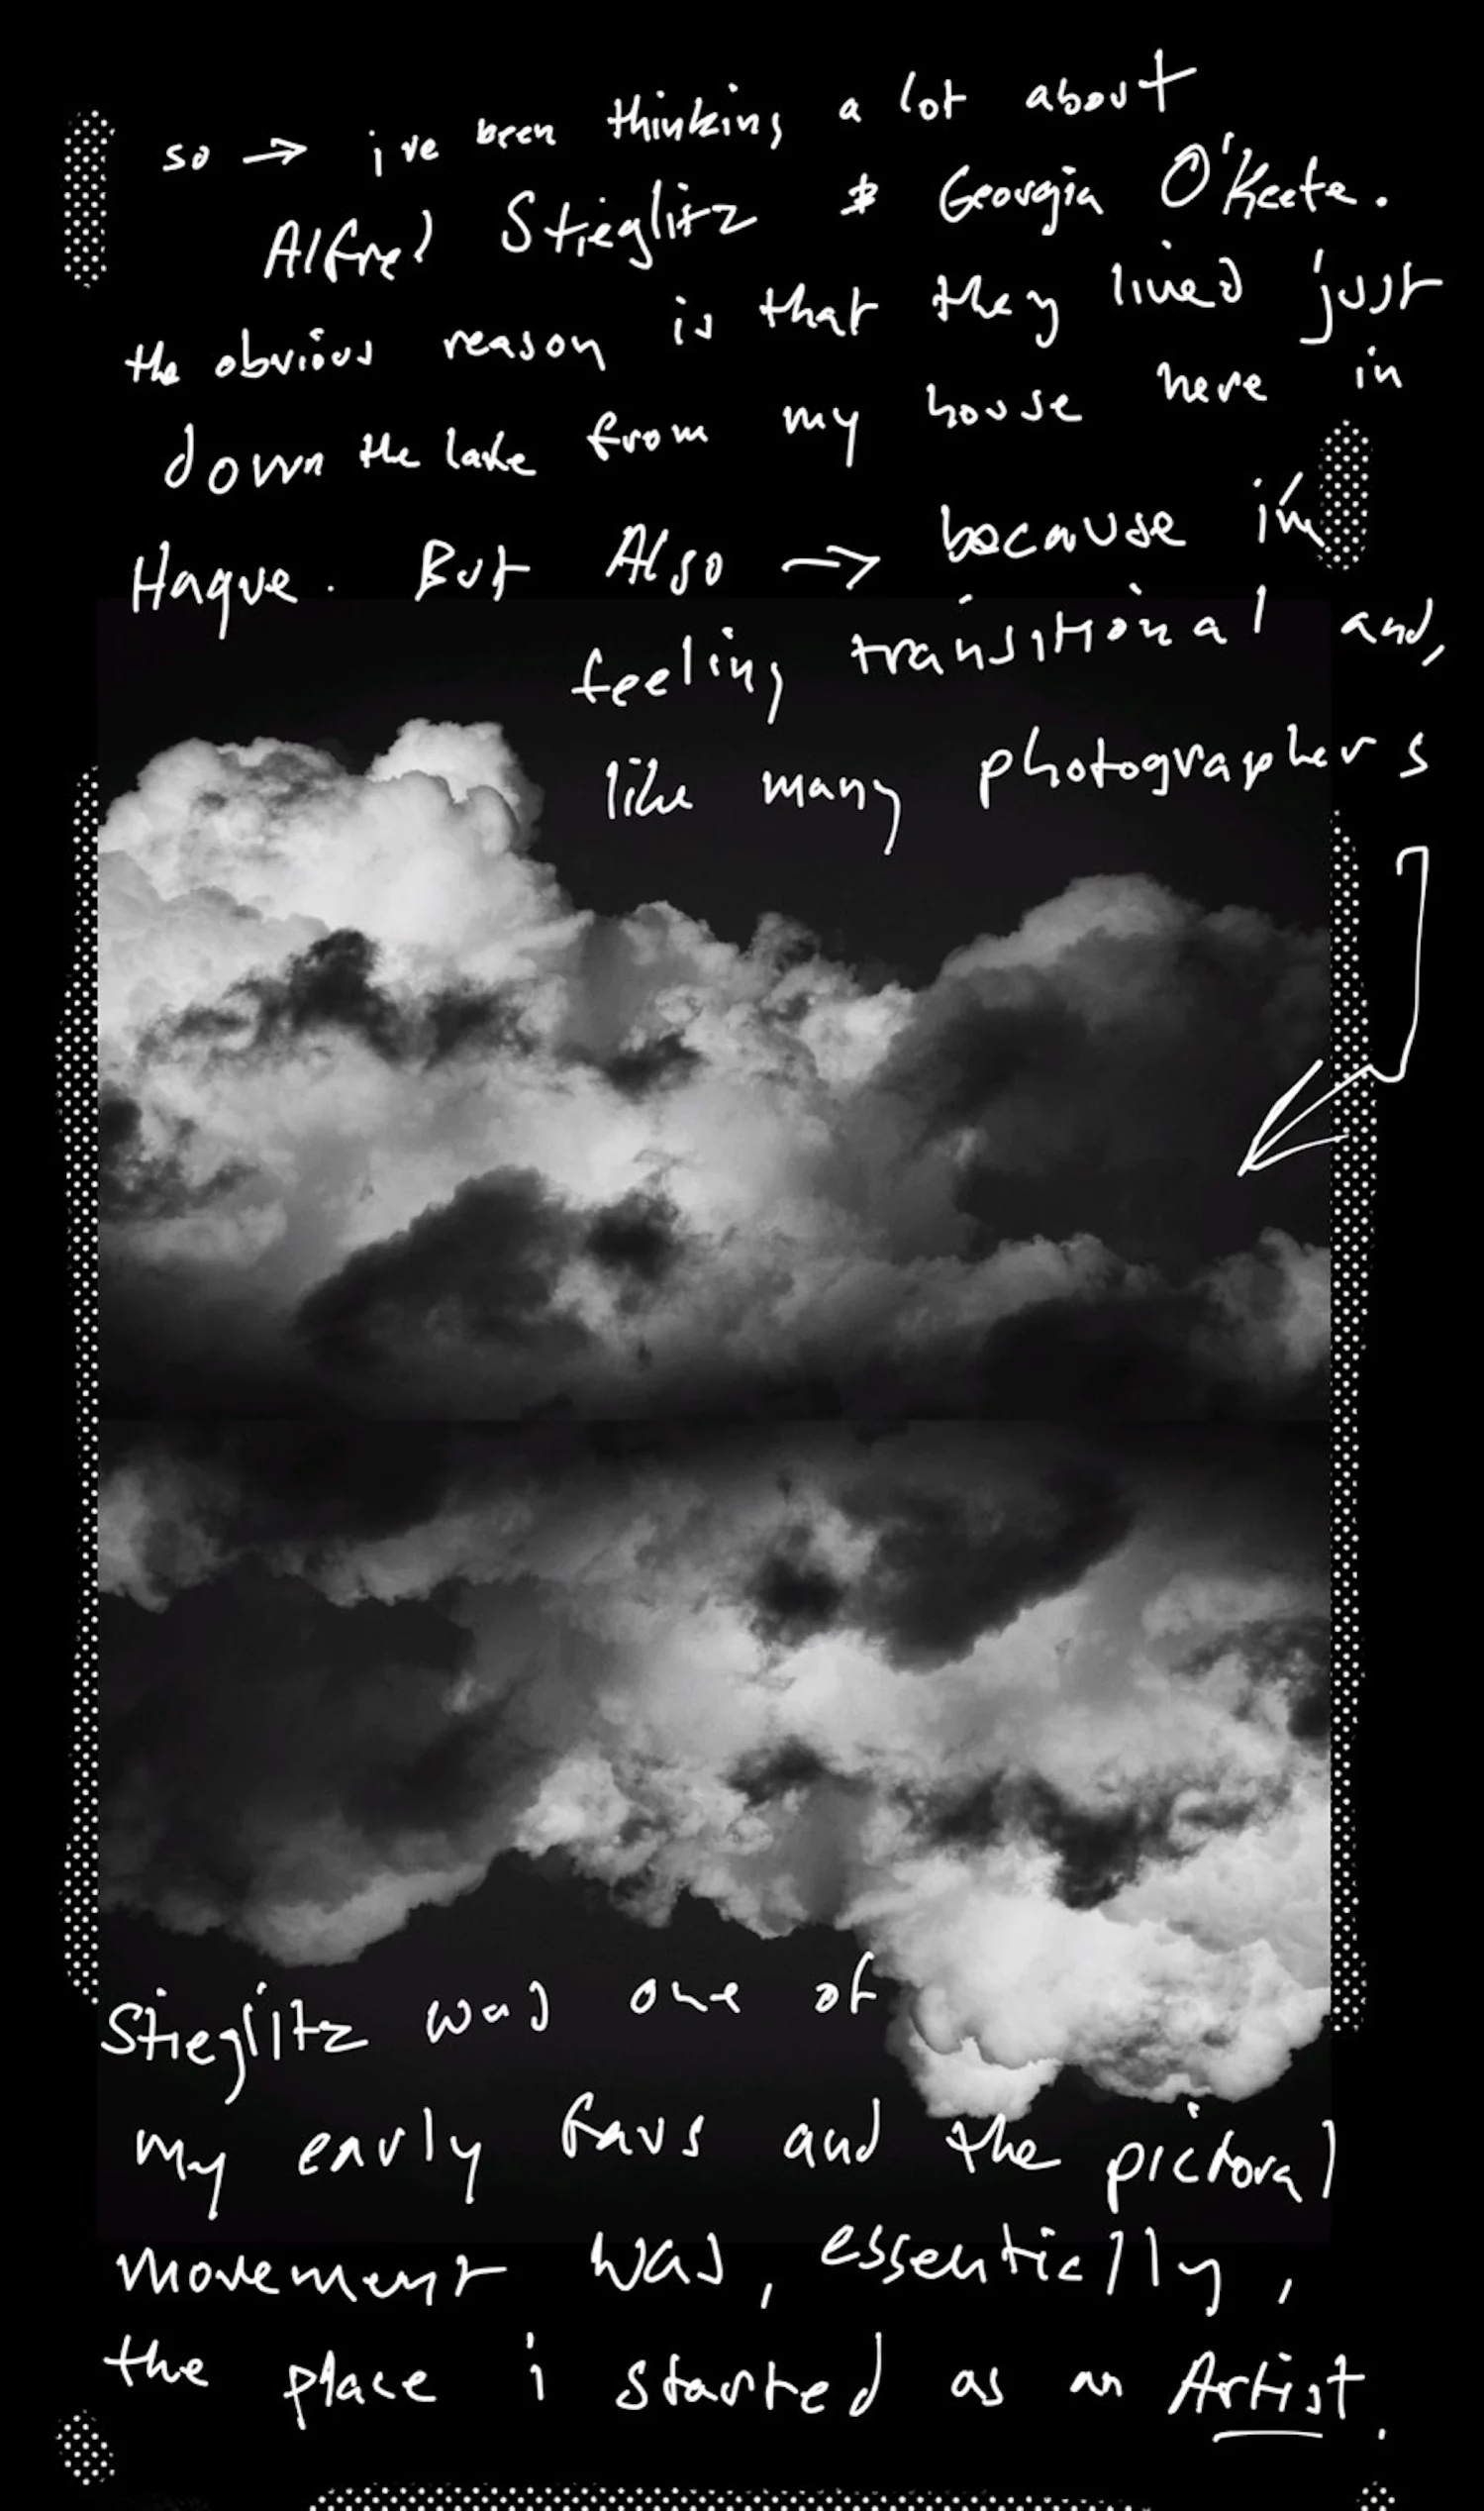 so → i've been thinking a lot about
Alfred Stieglitz & Georgia O'Keefe.
the obvious reason is that they lived just
down the lake from my house here in
Hague. But Also → because i'm
feeling transitional and,
like many photographers
Stieglitz was one of
my early favs and the pictoral
movement was, essentially,
the place i started as an Artist.